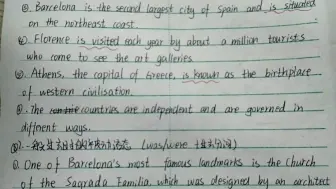 ②. Barcelona is the second largest city of Spain and is situated
on the northeast coast.
②. Florence is visited each year by about a million tourists
who come to see the art galleries.
③. Athens, the capital of Greece, is known as the birthplace
of western civilisation.
④. The countries are independent and are governed in
diffrent ways.
(was/were
①. One of Barcelona's most famous landmarks is the Church
of the Sagrada Familia, which was designed by an architect